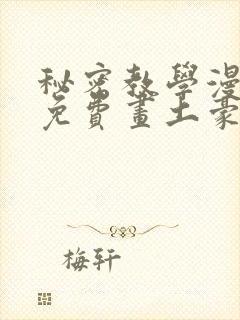 秘密教學漫
免費畫土豪
梅轩